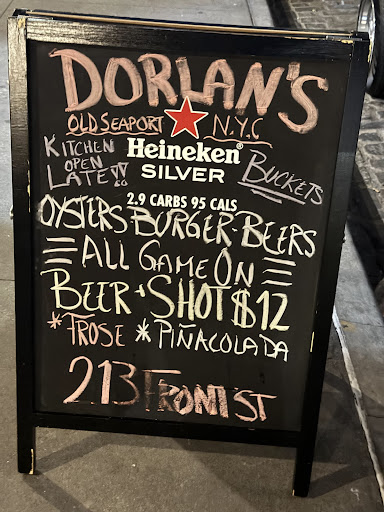 DORLAN'S
OLD SEAPORT N.Y.C
KITCHEN OPEN LATE!!
Heineken®
SILVER
BUCKETS
2.9 CARBS 95 CALS
OYSTERS BURGER-BEERS
ALL GAME ON
BEER + SHOT $12
*FROSE *PIÑACOLADA
213 FRONT ST